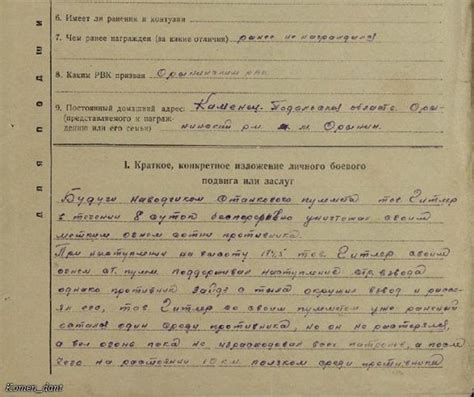 6. Имеет ли ранения и контузии
7. Чем ранее награжден (за какие отличия) ранее не награждался
8. Каким РВК призван Орынинским РВК
9. Постоянный домашний адрес: Каменец-Подольская область. Оры-
(представляемого к награж-
дению или его семьи) нинский р-н м. Орынин.
I. Краткое, конкретное изложение личного боевого
подвига или заслуг
Будучи наводчиком станкового пулемета тов Гитлер
в течении 8 суток бесперерывно уничтожал своим
метким огнем сотни противника.
При наступлении на высоту 174,5 тов Гитлер своим
огнем ст. пулем. поддерживал наступление стр. взвода
однако противник зайдя с тыла окружил взвод и рассе-
ял его, тов Гитлер со своим пулеметом уже раненой
остался один среди противника, но он не растерялся,
а вел огонь пока не израсходовал всех патронов, а после
чего на расстоянии 10 км. ползком среди противника
для подши
Komen_dant